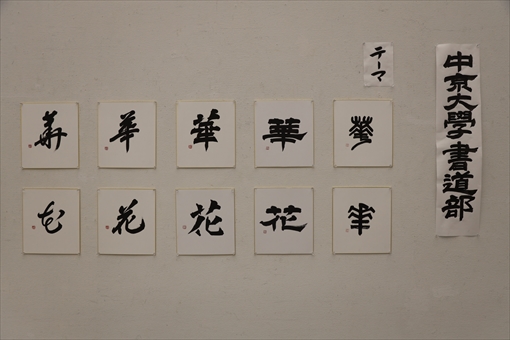 中京大學書道部
テーマ
華華華華華
花花花花花